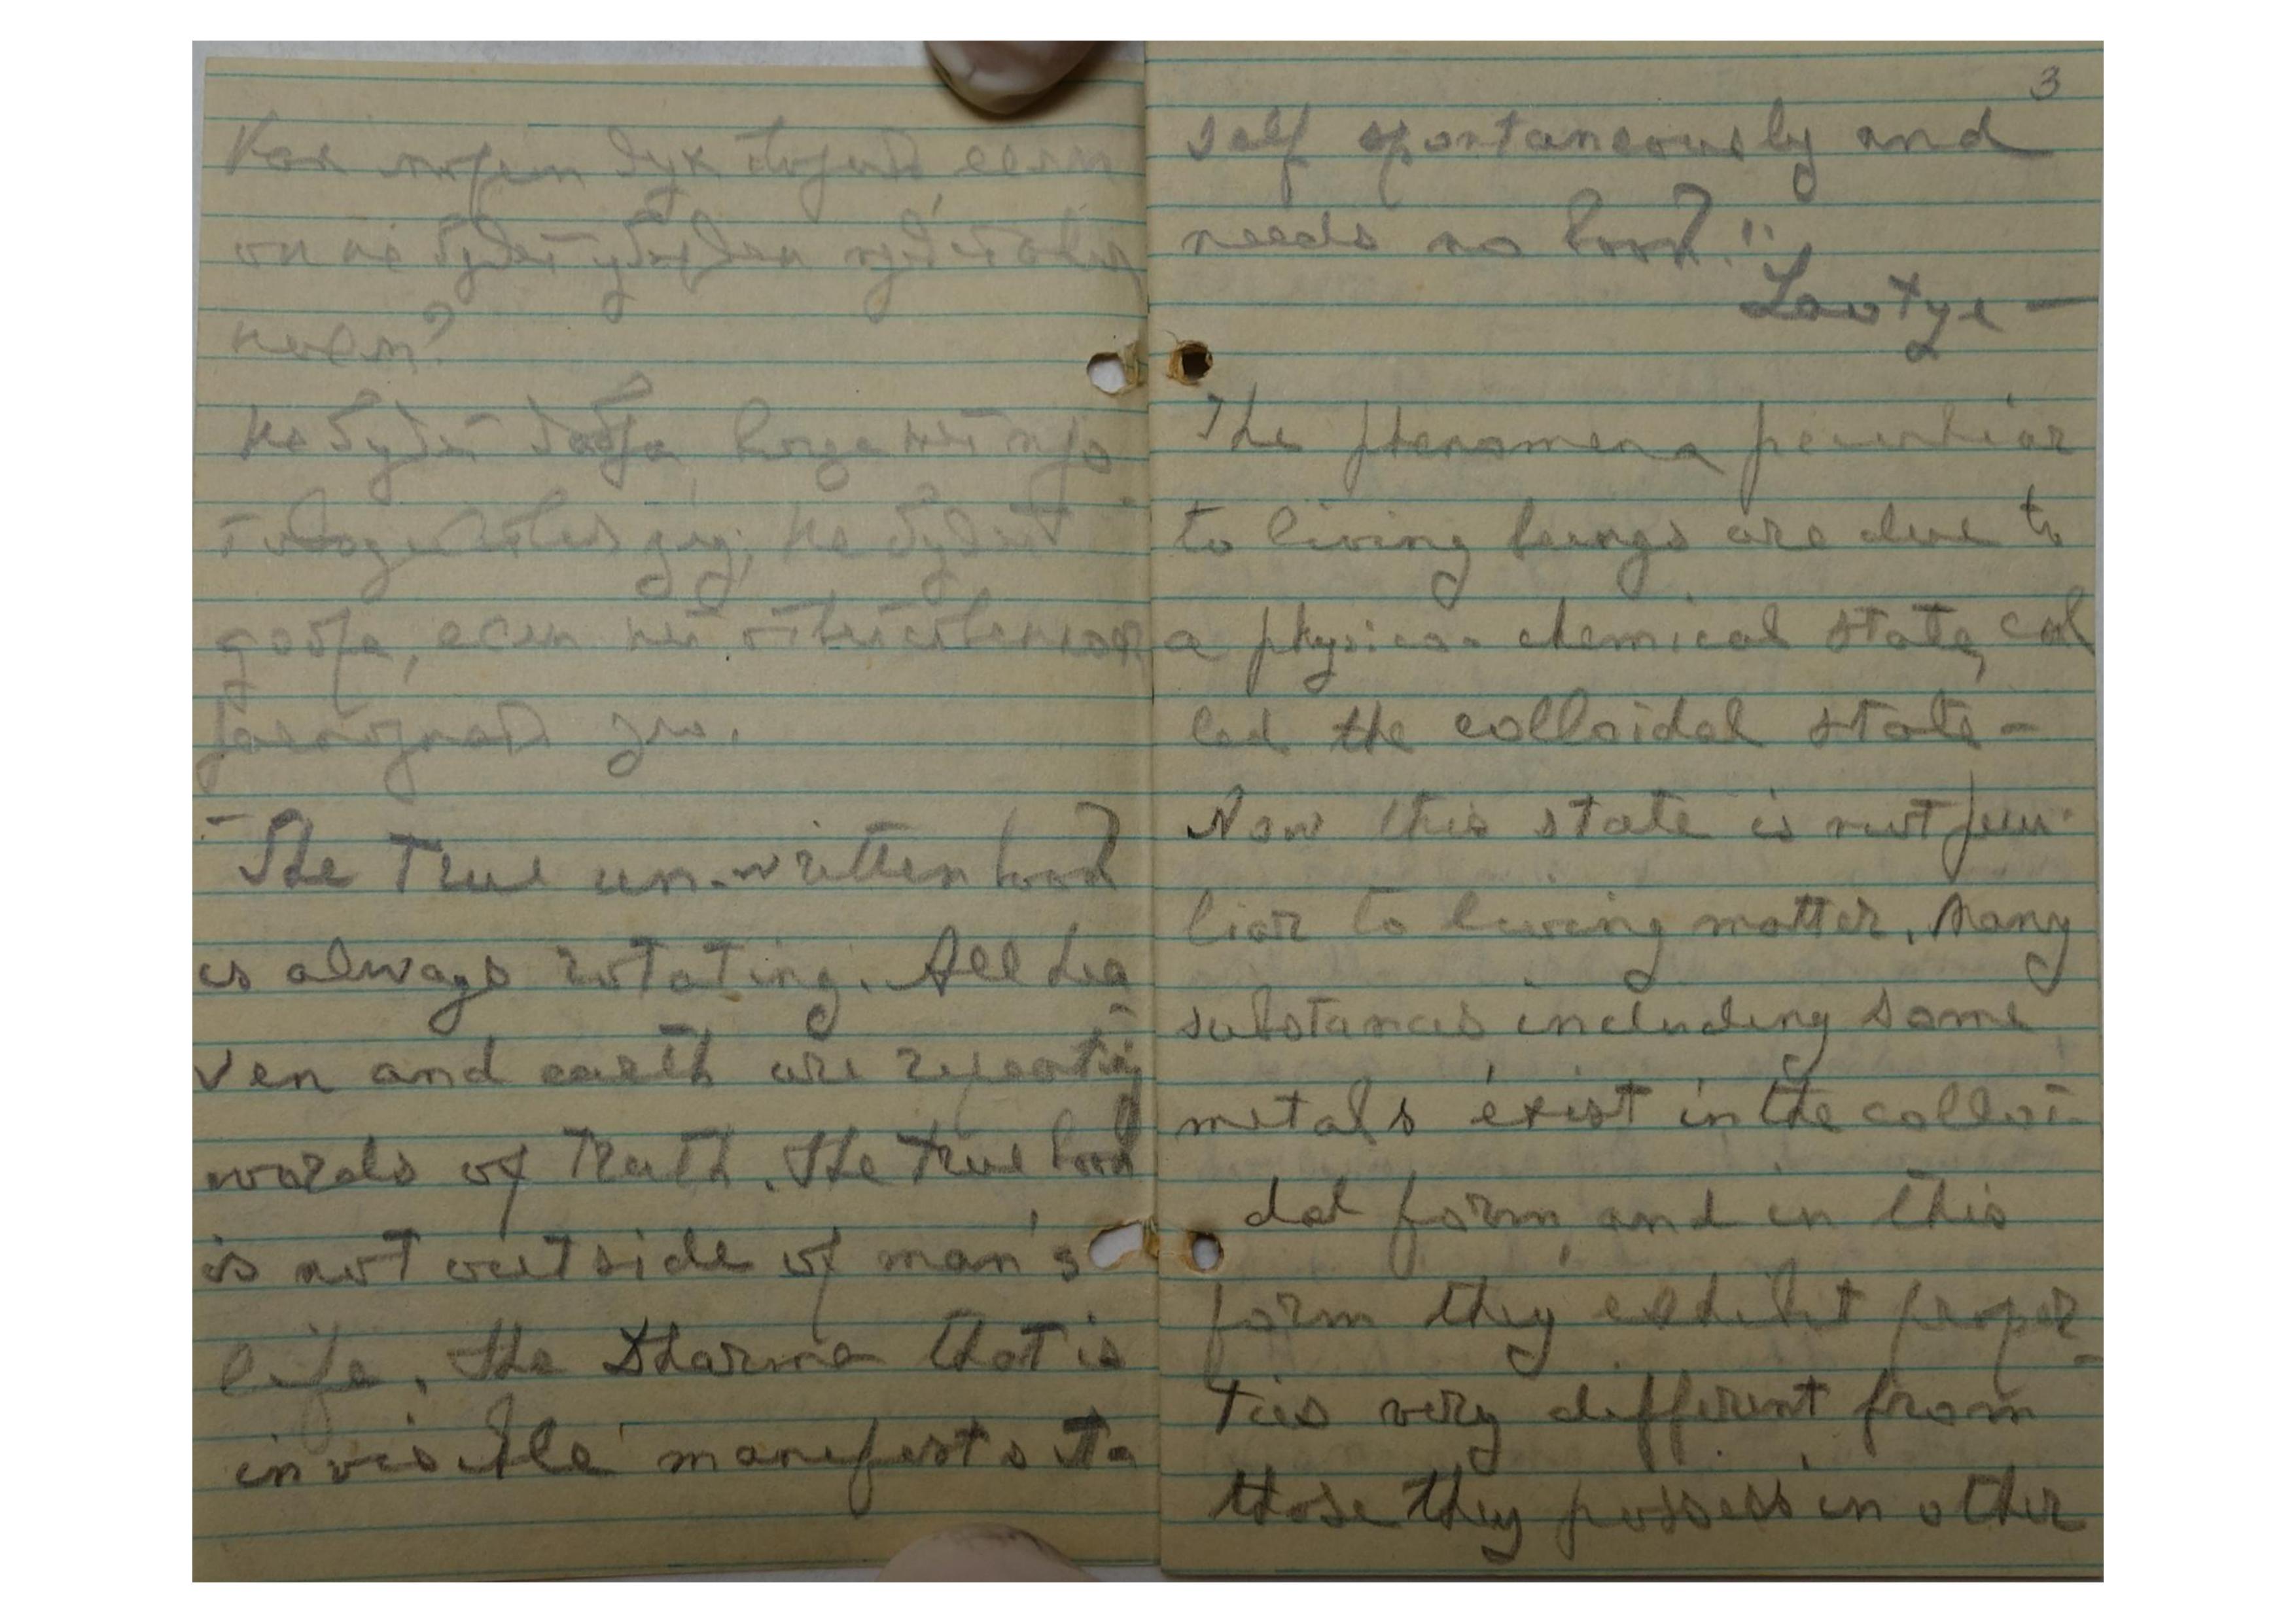 Как может дух творить, если
он не будет убежден
нием?
Не будет добра, когда нет про
не будет
добра, если нет
распознать зло.
"The True un-written book
is always rotating. All hea-
ven and earth are repeating
words of Truth. The true book
is not outside of man's
life. The Dharma that is
invisible manifests it-
3
self spontaneously and
needs no book."
Laotze –
The phenomena peculiar
to living beings are due to
a physico-chemical state, cal
led the colloidal state –
Now this state is not pecu-
liar to living matter. Many
substances including some
metals exist in the colloi-
dal form, and in this
form they exhibit proper-
ties very different from
those they possess in other